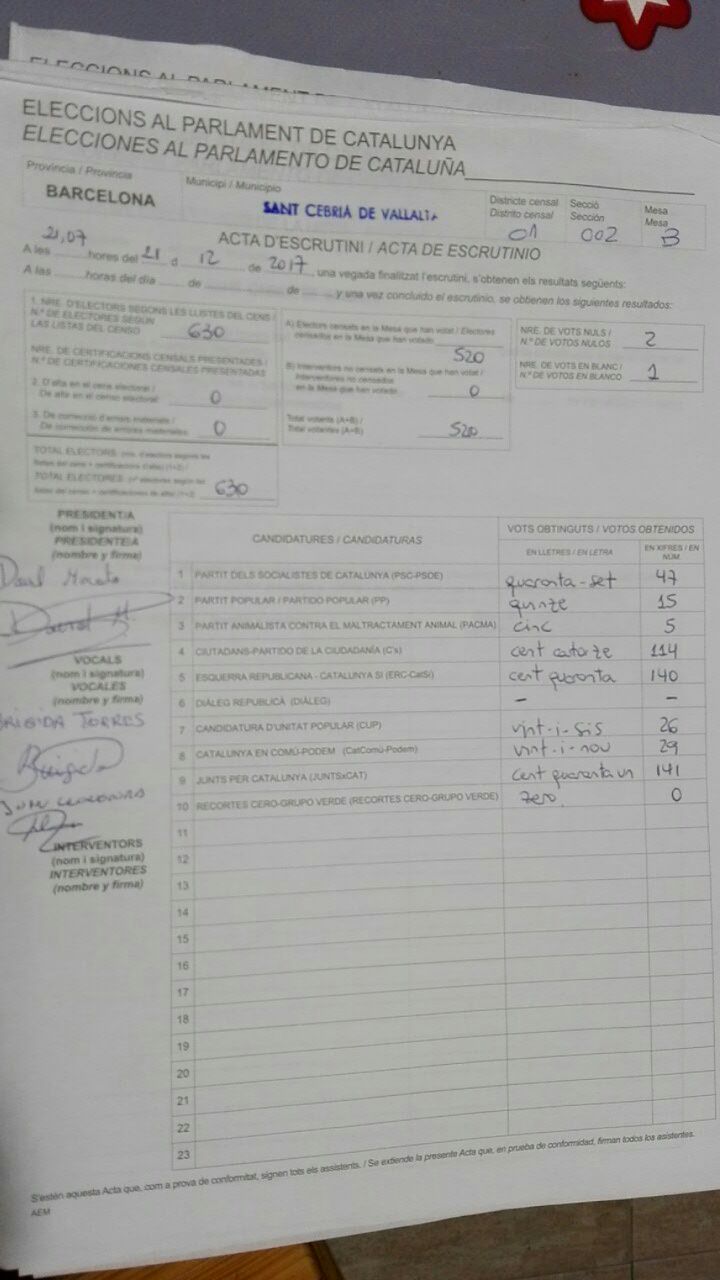 ELECCIONS AL PARLAMENT DE CATALUNYA
ELECCIONES AL PARLAMENTO DE CATALUÑA
Província / Provincia
BARCELONA
Municipi / Municipio
SANT CEBRIÀ DE VALLALTA
Districte censal
Distrito censal
01
Secció
Sección
002
Mesa
Mesa
B
ACTA D'ESCRUTINI / ACTA DE ESCRUTINIO
A les 21,07 hores del 21 d 12 de 2017, una vegada finalitzat l'escrutini, s'obtenen els resultats següents:
A las ........ horas del día ........ de ........ de ........ y una vez concluido el escrutinio, se obtienen los siguientes resultados:
1. NRE. D'ELECTORS SEGONS LES LLISTES DEL CENS /
N.º DE ELECTORES SEGÚN
LAS LISTAS DEL CENSO 630
NRE. DE CERTIFICACIONS CENSALS PRESENTADES /
N.º DE CERTIFICACIONES CENSALES PRESENTADAS
2. D'alta en el cens electoral /
De alta en el censo electoral 0
3. De correcció d'errors materials /
De corrección de errores materiales 0
TOTAL ELECTORS
TOTAL ELECTORES 630
A) Electors censats en la Mesa que han votat / Electores
censados en la Mesa que han votado
520
B) Interventors no censats en la Mesa que han votat /
Interventores no censados
en la Mesa que han votado 0
Total votants (A+B) /
Total votantes (A+B) 520
NRE. DE VOTS NULS /
N.º DE VOTOS NULOS 2
NRE. DE VOTS EN BLANC /
N.º DE VOTOS EN BLANCO 1
PRESIDENT/A
(nom i signatura)
PRESIDENTE/A
(nombre y firma)
David
David M.
VOCALS
(nom i signatura)
VOCALES
(nombre y firma)
BRIGIDA TORRES
Brigida
INTERVENTORS
(nom i signatura)
INTERVENTORES
(nombre y firma)
CANDIDATURES / CANDIDATURAS
VOTS OBTINGUTS / VOTOS OBTENIDOS
EN LLETRES / EN LETRA
EN XIFRES / EN
NÚM.
1 PARTIT DELS SOCIALISTES DE CATALUNYA (PSC-PSOE) quaranta-set 47
2 PARTIT POPULAR / PARTIDO POPULAR (PP) quinze 15
3 PARTIT ANIMALISTA CONTRA EL MALTRACTAMENT ANIMAL (PACMA) cinc 5
4 CIUTADANS-PARTIDO DE LA CIUDADANÍA (C's) cent catorze 114
5 ESQUERRA REPUBLICANA - CATALUNYA SÍ (ERC-CatSí) cent quaranta 140
6 DIÀLEG REPUBLICÀ (DIÀLEG) - -
7 CANDIDATURA D'UNITAT POPULAR (CUP) vint-i-sis 26
8 CATALUNYA EN COMÚ-PODEM (CatComú-Podem) vint-i-nou 29
9 JUNTS PER CATALUNYA (JUNTSxCAT) cent quaranta un 141
10 RECORTES CERO-GRUPO VERDE (RECORTES CERO-GRUPO VERDE) zero 0
11
12
13
14
15
16
17
18
19
20
21
22
23
S'estén aquesta Acta que, com a prova de conformitat, signen tots els assistents. / Se extiende la presente Acta que, en prueba de conformidad, firman todos los asistentes.
AEM